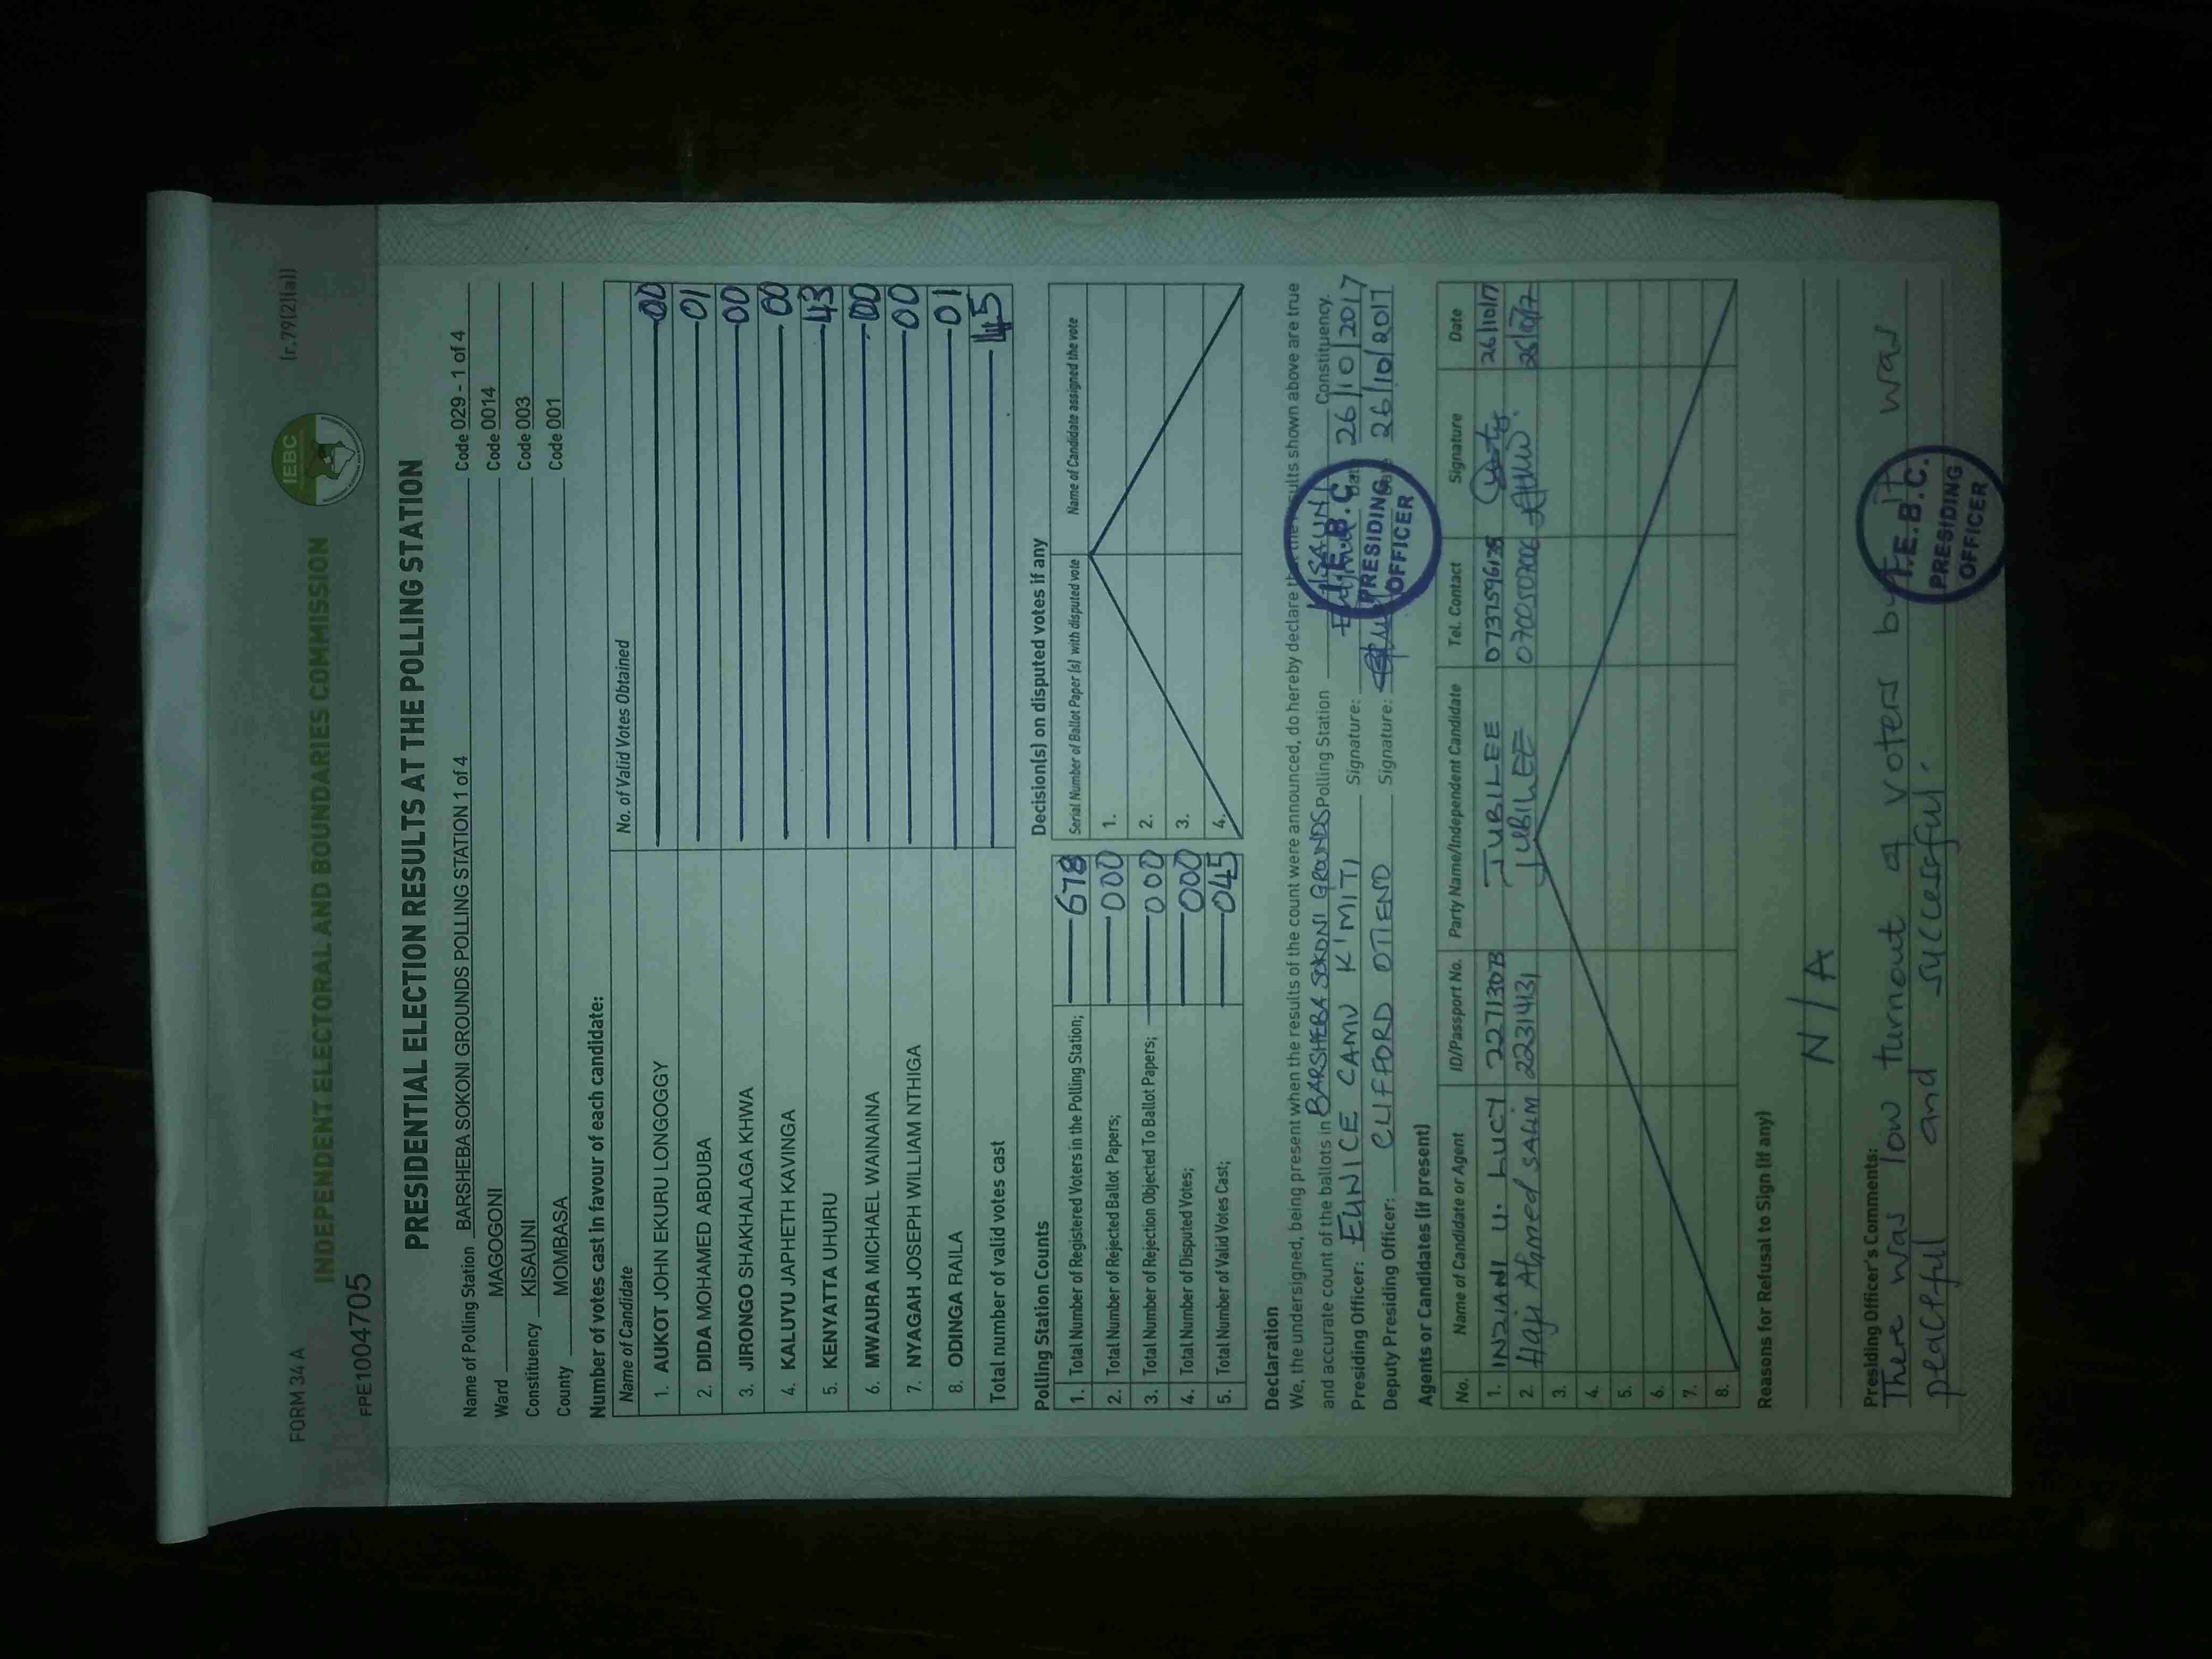 FORM 34 A
(r.79(2)(a))
IEBC
INDEPENDENT ELECTORAL AND BOUNDARIES COMMISSION
FPE1004705
PRESIDENTIAL ELECTION RESULTS AT THE POLLING STATION
Name of Polling Station BARSHEBA SOKONI GROUNDS POLLING STATION 1 of 4 Code 029 - 1 of 4
Ward MAGOGONI Code 0014
Constituency KISAUNI Code 003
County MOMBASA Code 001
Number of votes cast in favour of each candidate:
Name of Candidate No. of Valid Votes Obtained
1. AUKOT JOHN EKURU LONGOGGY 00
2. DIDA MOHAMED ABDUBA 01
3. JIRONGO SHAKHALAGA KHWA 00
4. KALUYU JAPHETH KAVINGA 00
5. KENYATTA UHURU 43
6. MWAURA MICHAEL WAINAINA 00
7. NYAGAH JOSEPH WILLIAM NTHIGA 00
8. ODINGA RAILA 01
Total number of valid votes cast 45
Polling Station Counts
1. Total Number of Registered Voters in the Polling Station; 678
2. Total Number of Rejected Ballot Papers; 000
3. Total Number of Rejection Objected To Ballot Papers; 000
4. Total Number of Disputed Votes; 000
5. Total Number of Valid Votes Cast; 045
Decision(s) on disputed votes if any
Serial Number of Ballot Paper (s) with disputed vote Name of Candidate assigned the vote
1.
2.
3.
4.
Declaration
We, the undersigned, being present when the results of the count were announced, do hereby declare that the results shown above are true
and accurate count of the ballots in BARSHEBA SOKONI GROUNDS Polling Station KISAUNI Constituency.
Presiding Officer: EUNICE CAMU K'MITI Signature: Date 26/10/2017
Deputy Presiding Officer: CLIFFORD OTIENO Signature: Date 26/10/2017
I.E.B.C.
PRESIDING
OFFICER
Agents or Candidates (if present)
No. Name of Candidate or Agent ID/Passport No. Party Name/Independent Candidate Tel. Contact Signature Date
1. INZIANI U. LUCY 22713073 JUBILEE 0737596135 26/10/17
2. Haji Ahmed SALIM 22314131 JUBILEE 0700507006 26/10/17
3.
4.
5.
6.
7.
8.
Reasons for Refusal to Sign (if any)
N/A
Presiding Officer's Comments:
There was low turnout of voters but it was
peaceful and successful.
I.E.B.C.
PRESIDING
OFFICER